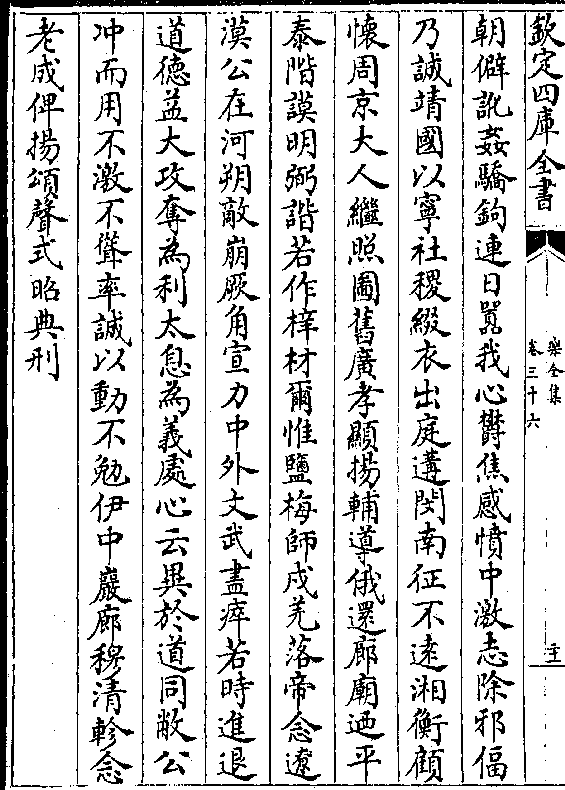 欽定四庫全書
樂全集
卷三十六
朝僻訛姦驕鉤連日嚚我心欝焦感憤中激志除邪偪
乃誠靖國以寧社稷綴衣出庭遘閔南征不逺湘衡顧
懷周京大人繼照圖舊廣孝顯揚輔導俄還廊廟廼平
泰階謨明弼諧若作梓材爾惟鹽梅師戍羌落帝念遼
漠公在河朔敵崩厥角宣力中外文武盡瘁若時進退
道德益大攻奪為利太息為義處心云異於道同敝公
冲而用不激不聳率誠以動不勉伊中巖廊穆清軫念
老成俾揚頌聲式昭典刑